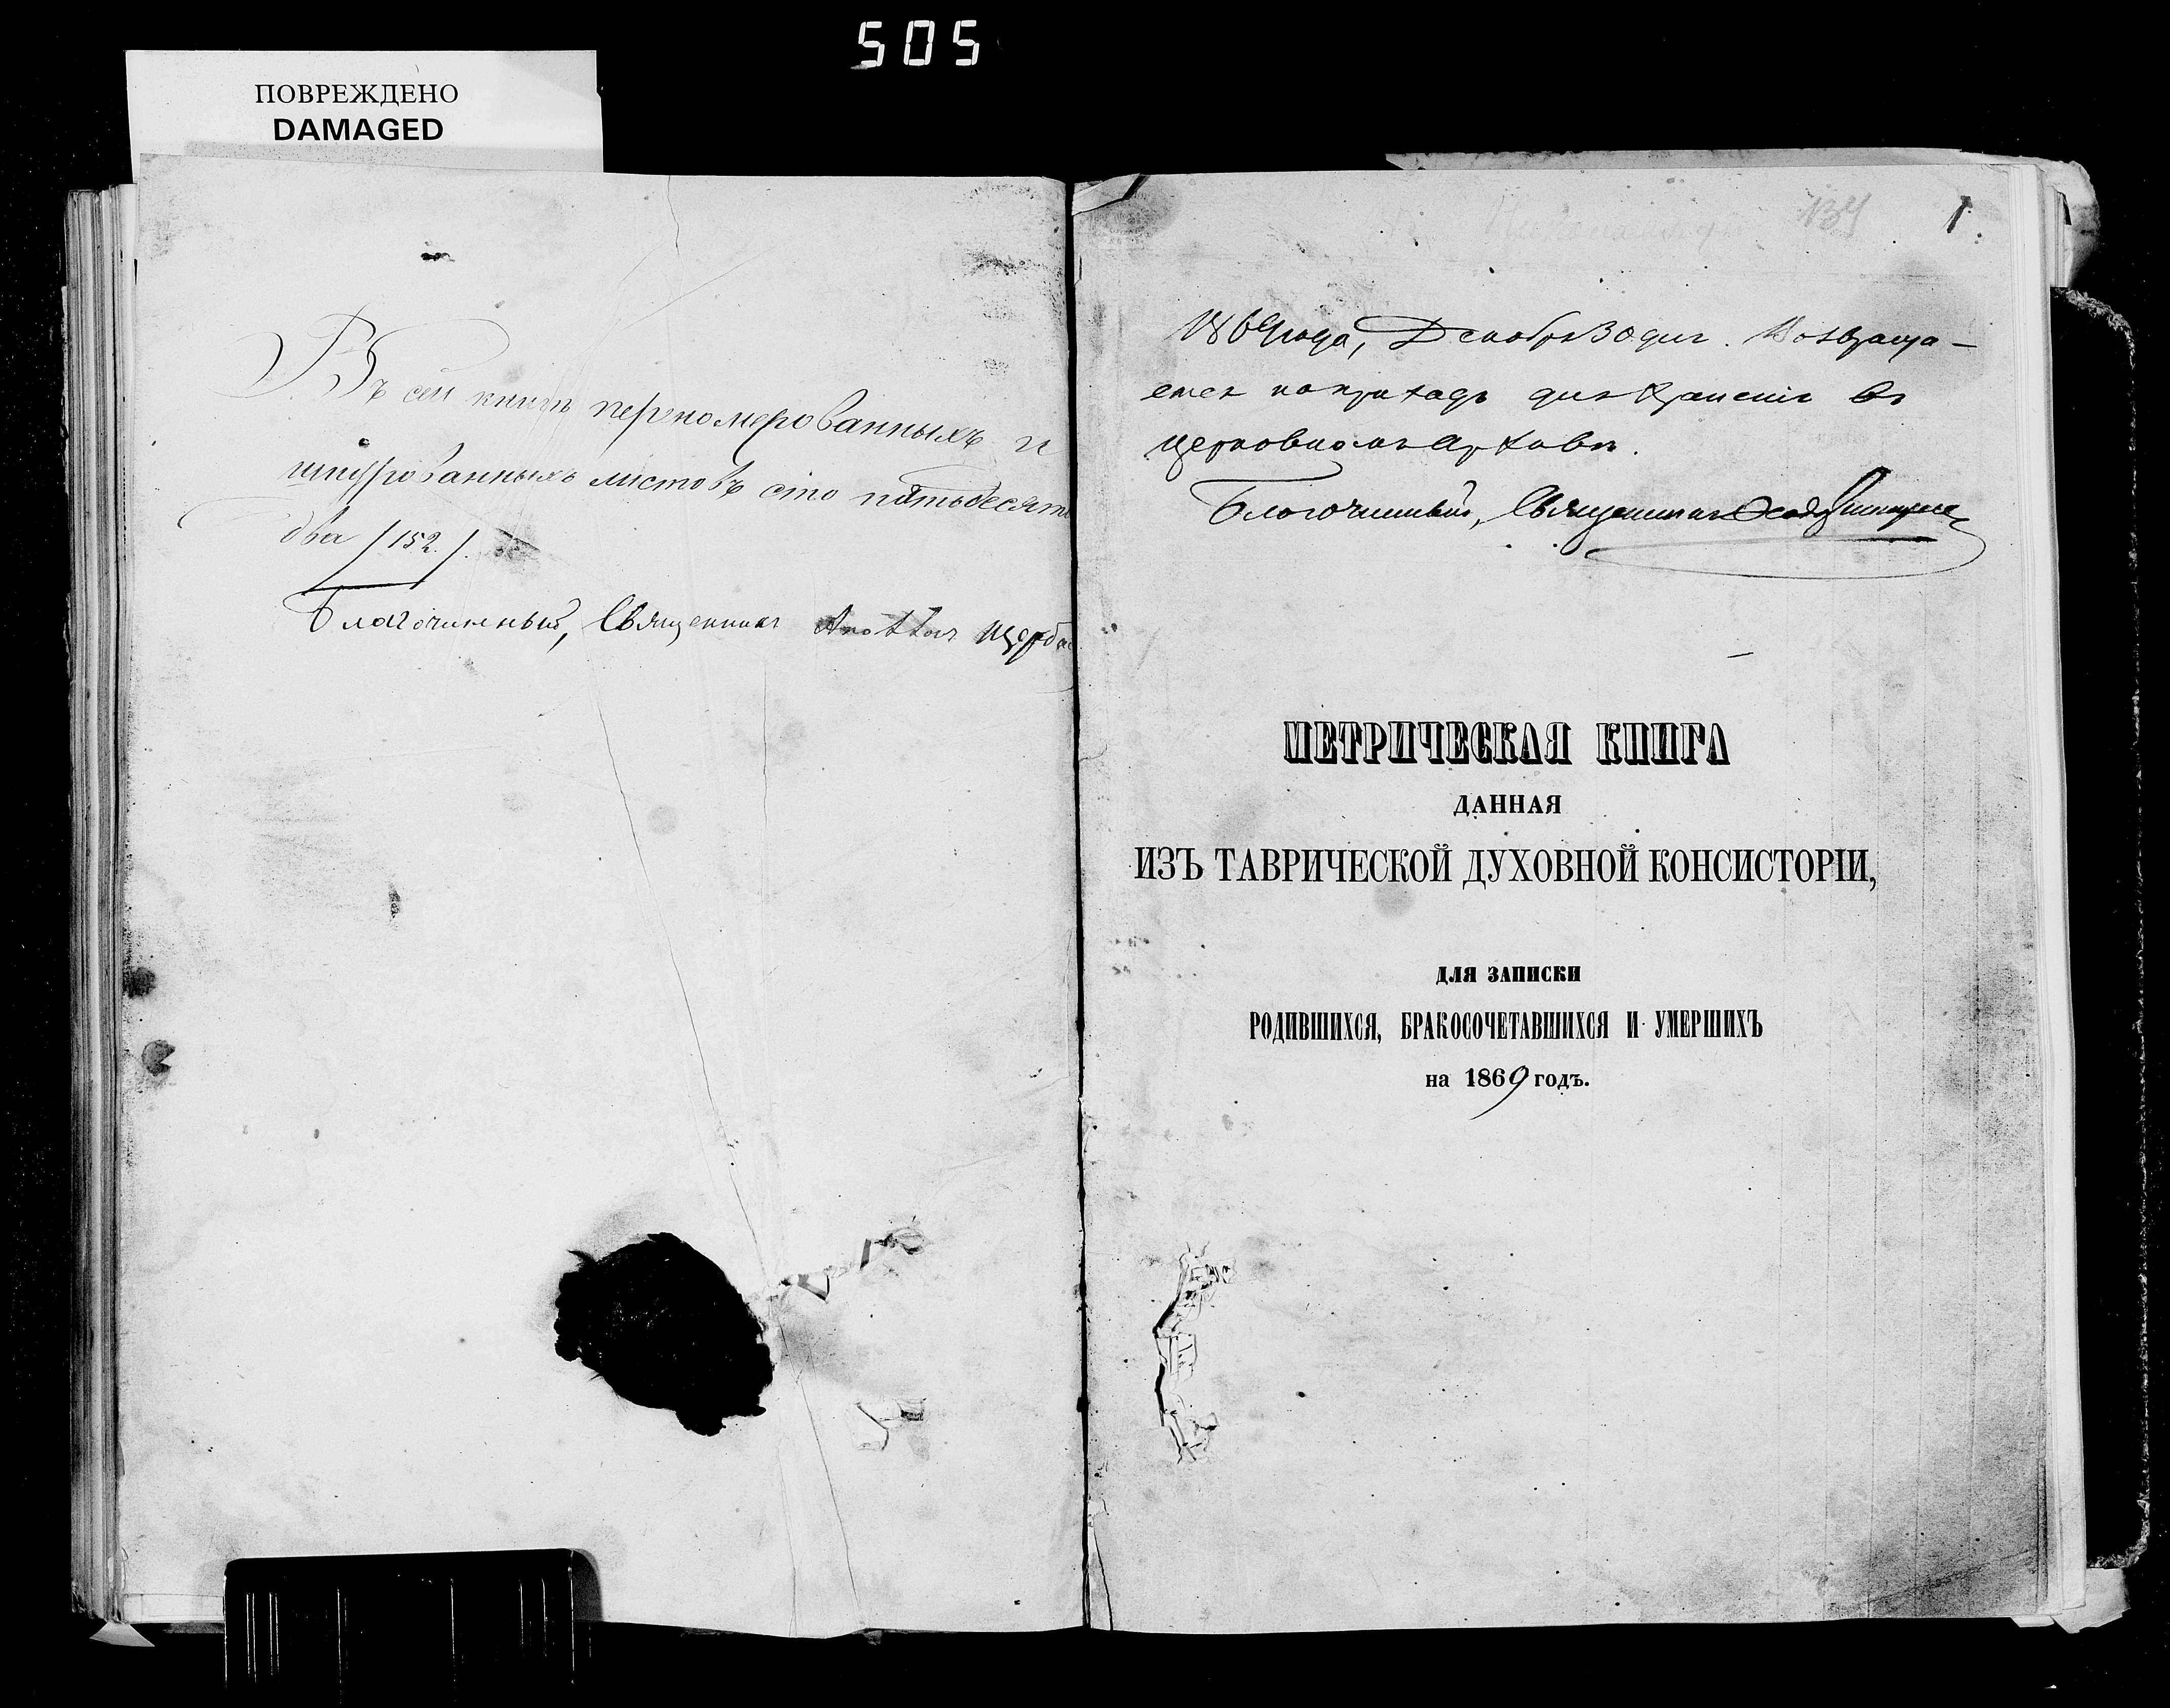 505
ПОВРЕЖДЕНО
DAMAGED
Въ сей книгѣ перономерованныхъ и
шнурованныхъ листовъ сто пятьдесятъ
два /152./.
Благочинный, Священникъ Щерба
1
1869 года, Декабря 30 дня. Возвраща-
ется въ приходъ для храненія въ
церковномъ архивѣ.
Благочинный, Священникъ
МЕТРИЧЕСКАЯ КНИГА
ДАННАЯ
ИЗЪ ТАВРИЧЕСКОЙ ДУХОВНОЙ КОНСИСТОРІИ,
ДЛЯ ЗАПИСКИ
РОДИВШИХСЯ, БРАКОСОЧЕТАВШИХСЯ И УМЕРШИХЪ
на 1869 годъ.